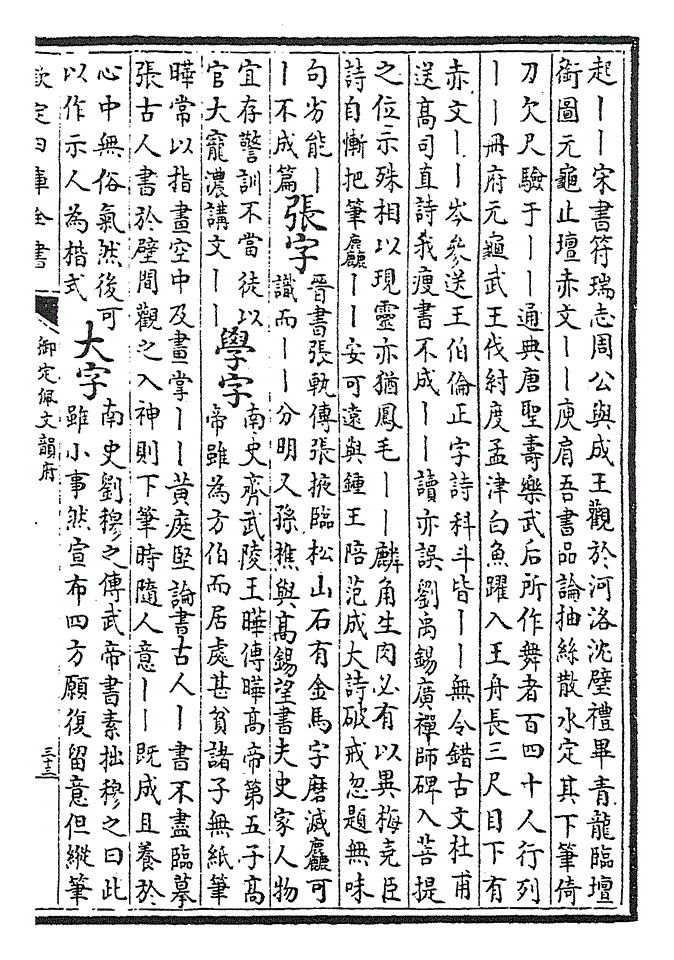 起丨丨宋書符瑞志周公與成王觀於河洛沈璧禮畢青龍臨壇
銜圖元龜止壇赤文丨丨庾肩吾書品論抽絲散水定其下筆倚
刀欠尺驗于丨丨通典唐聖壽樂武后所作舞者百四十人行列
丨丨冊府元龜武王伐紂度孟津白魚躍入王舟長三尺目下有
赤文丨丨岑參送王伯倫正字詩科斗皆丨丨無令錯古文杜甫
送髙司直詩我瘦書不成丨丨讀亦誤劉禹錫廣禪師碑入菩提
之位示殊相以現靈亦猶鳳毛丨丨麟角生肉必有以異梅堯臣
詩自慚把筆麤丨丨安可遠與鍾王陪范成大詩破戒忽題無味
句劣能丨
丨不成篇
張字
晉書張軌傳張掖臨松山石有金馬字磨滅麤可
識而丨丨分明又孫樵與髙錫望書夫史家人物
宜存警訓不當徒以
官大寵濃講文丨丨
學字
南史齊武陵王曄傳曄髙帝第五子髙
帝雖為方伯而居處甚貧諸子無紙筆
曄常以指畫空中及畫掌丨丨黃庭堅論書古人丨書不盡臨摹
張古人書於壁間觀之入神則下筆時隨人意丨丨既成且養於
心中無俗氣然後可
以作示人為楷式
大字
南史劉穆之傳武帝書素拙穆之曰此
雖小事然宣布四方願復留意但縱筆
欽定四庫全書
御定佩文韻府
三十三